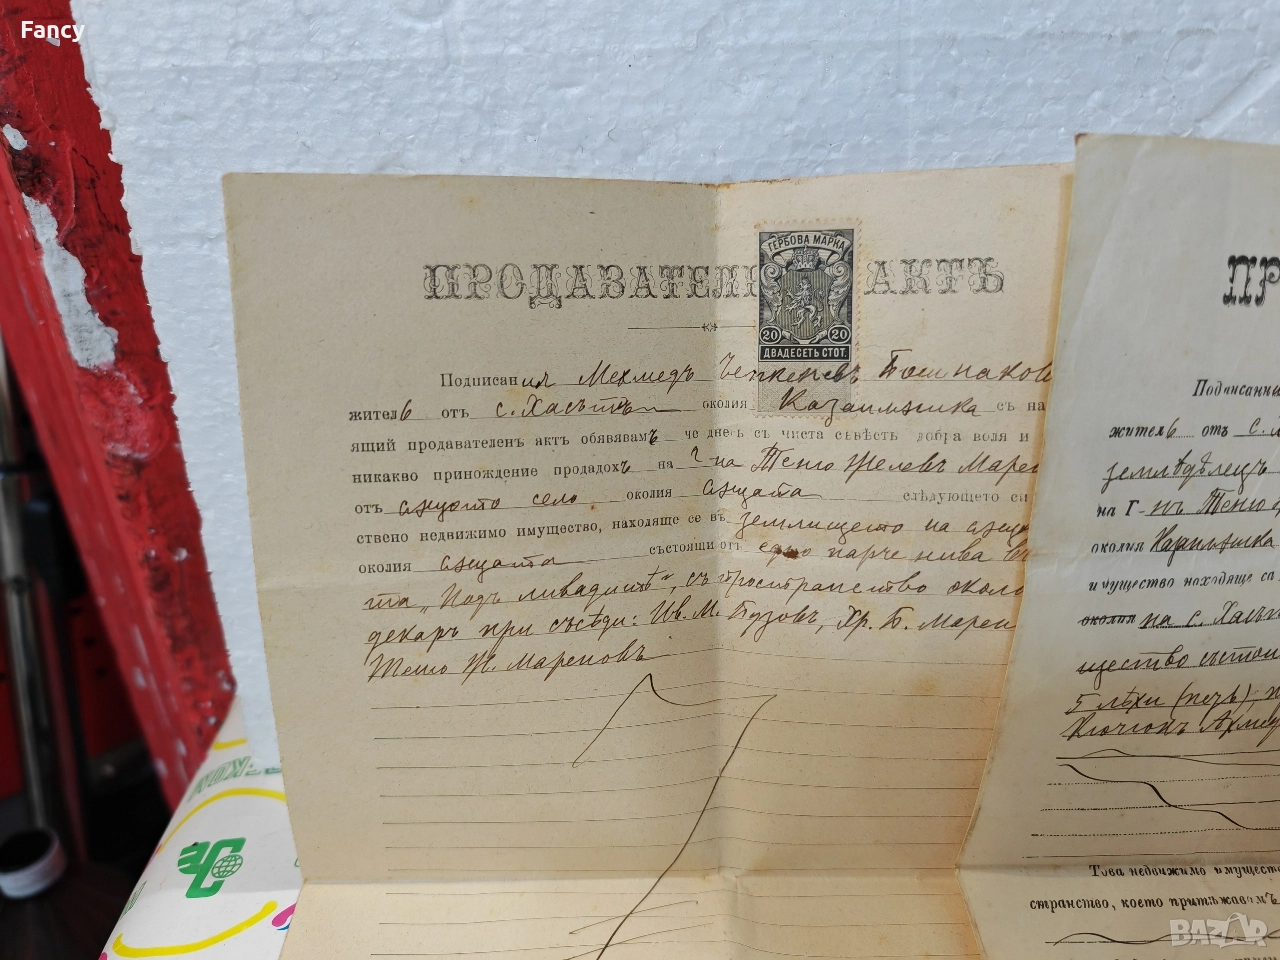 Fancy
ПРОДАВАТЕЛ АКТЪ
ГЕРБОВА МАРКА
20 20
ДВАДЕСЕТЬ СТОТ.
Подписаний Мехмедъ
жителъ отъ с. околия Казанлъшка съ на
ящий продавателен актъ обявявамъ че днесъ съ чиста съвѣсть добра воля и
никакво принождение продадохъ на г на Теню Желевъ Марен
отъ сѫщото село околия сѫщата слѣдующето си
ствено недвижимо имущество, находяще се въ землището на сѫщо
околия сѫщата състоящи отъ едно парче нива въ
та „Подъ ливадитѣ“, съ пространство около
декаръ при съсѣди: Ив. М. Бузовъ, Хр. Б. Марен
Теню Ж. Мареновъ
ПР
Подписанни
жителъ отъ с.
землѣдѣлецъ
на Г-нъ Теню
околия
имущество находяще се
околия на с.
щество състоящ
5 лѣхи
Ахмед
Това недвижимо имуществ
странство, което притѣжавамъ
BAZAR